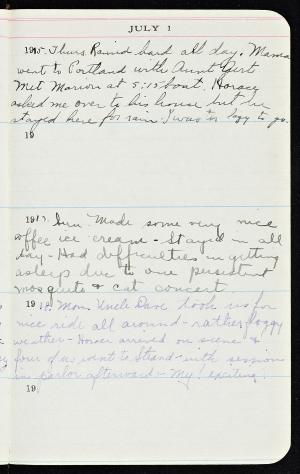 JULY 1
1915. Thurs. Rained hard all day. Mama
went to Portland with Aunt Gert
Met Marion at 5:15 boat. Horace
asked me over to his house but he
stayed here for rain. I was to lazy to go.
19
1917. Sun. Made some very nice
coffee ice cream - Stayed in all
day - Had difficulties in getting
asleep due to one persistent
mosquito & cat concert
1918. Mon. Uncle Dave took us for
nice ride all around - rather foggy
weather - Horace arrived on scene &
four of us went to Strand - with sessions
in parlor afterward - My! exciting.
19